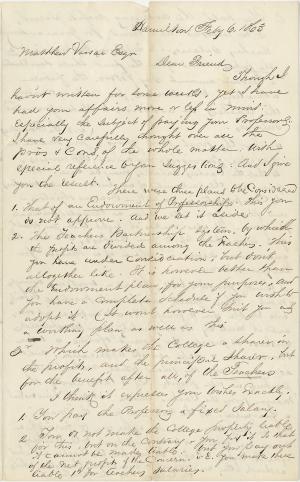 Hamilton Feby 6. 1863
Matthew Vassar Esqr
Dear Friend
Though I
havn't written for some weeks, yet I have
had your affairs more or less in mind.
Especially the subject of paying your Professors.
I have very carefully thought over all the
Pros & Cons, of the whole matter, with
special reference to your suggestions. And I give
you the result.
There were three plans to be considered
1. That of an Endowment of Professorships. This you
do not approve. And we let it aside
2. The Teachers Partnership System, by which
the profits are divided among the teachers. This
you have under Consideration, but don't
altogether like. It is however better than
the Endowment plan for your purposes, and
you have a Complete Schedule if you wish to
adopt it. It wont however
a working plan as well as this
3d Which makes the College a sharer in
the profits, and the principal sharer, but
for the benefit after all, of the Teachers
I think it expresses your wishes exactly.
1. You pay the Professors a fixed Salary.
2. You do not make the College property liable
for this, but on the Contrary
it cannot be made liable. But you pay out
of the net profits of the
liable 1st for teachers salaries.